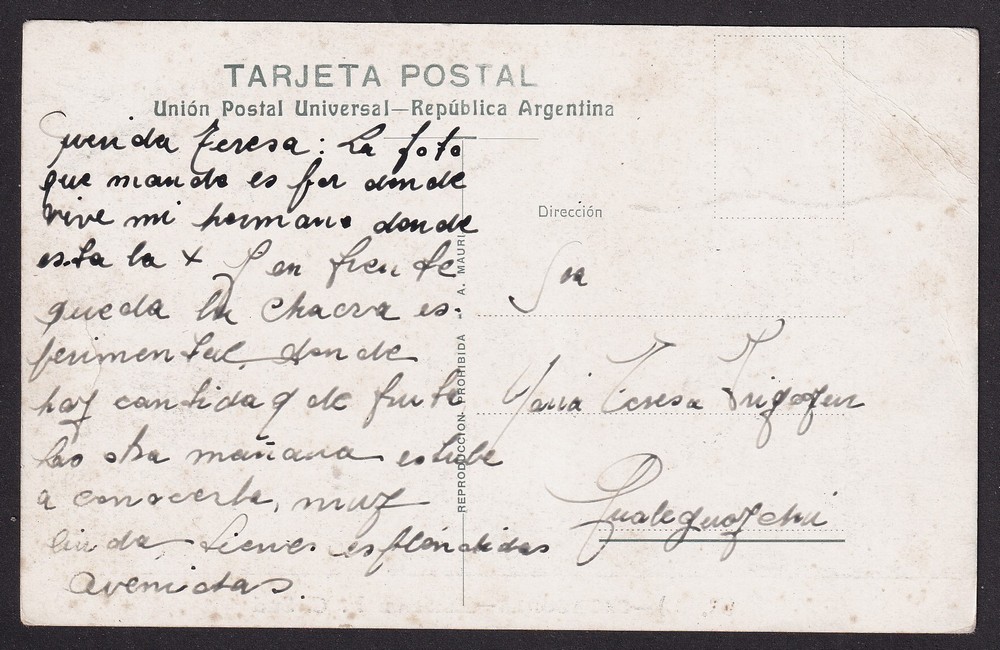 TARJETA POSTAL
Unión Postal Universal—República Argentina
Querida Teresa: La foto
que mando es por donde
vive mi hermano donde
esta la x y en frente
queda la chacra es-
perimental, donde
hay cantidad de fruta
las otra mañana estube
a conocerla, muy
linda tienes espléndidas
avenidas.
REPRODUCCION PROHIBIDA — A. MAURI
Dirección
Sra
Maria Teresa
Gualeguaychú